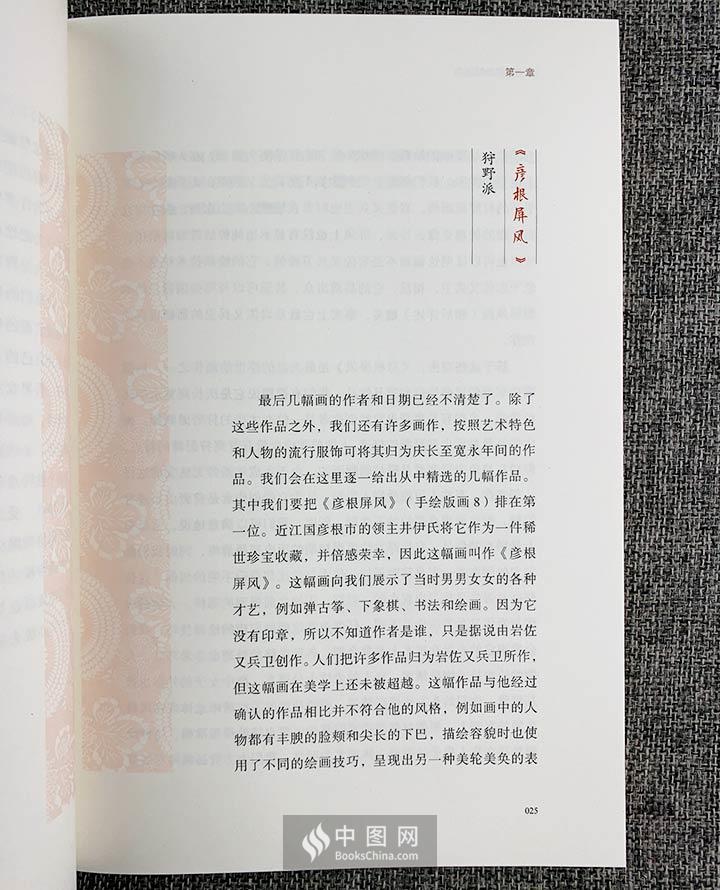 第一章
《彦根屏风》
狩野派
最后几幅画的作者和日期已经不清楚了。除了
这些作品之外，我们还有许多画作，按照艺术特色
和人物的流行服饰可将其归为庆长至宽永年间的作
品。我们会在这里逐一给出从中精选的几幅作品。
其中我们要把《彦根屏风》（手绘版画8）排在第
一位。近江国彦根市的领主井伊氏将它作为一件稀
世珍宝收藏，并倍感荣幸，因此这幅画叫作《彦根
屏风》。这幅画向我们展示了当时男男女女的各种
才艺，例如弹古筝、下象棋、书法和绘画。因为它
没有印章，所以不知道作者是谁，只是据说由岩佐
又兵卫创作。人们把许多作品归为岩佐又兵卫所作，
但这幅画在美学上还未被超越。这幅作品与他经过
确认的作品相比并不符合他的风格，例如画中的人
物都有丰腴的脸颊和尖长的下巴，描绘容貌时也使
用了不同的绘画技巧，呈现出另一种美轮美奂的表
025
中图网
BooksChina.com